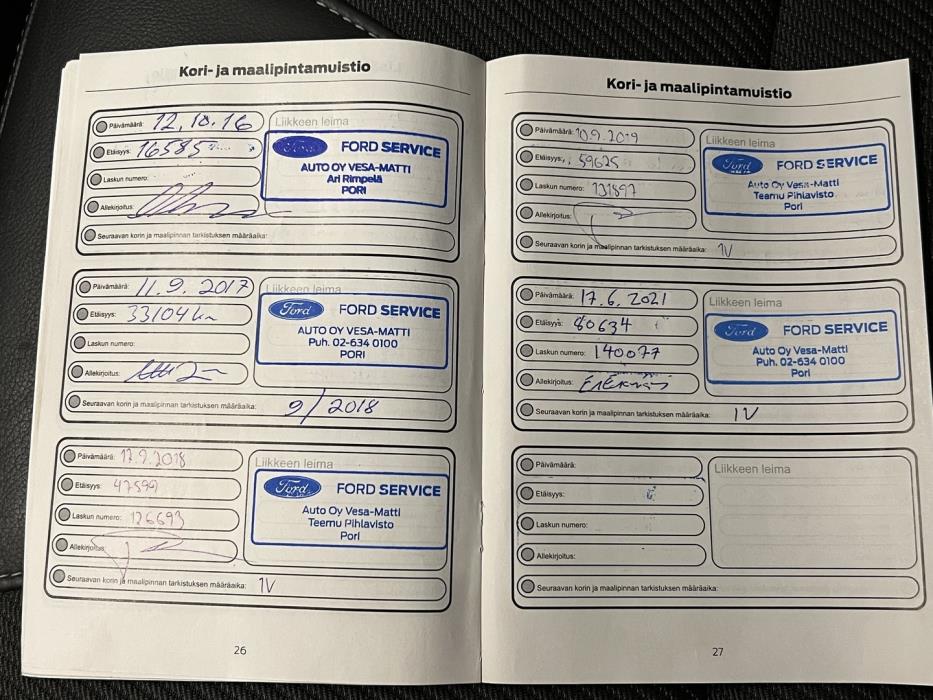 Kori- ja maalipintamuistio
Päivämäärä: 12.10.16
Liikkeen leima
Etäisyys: 16585
Laskun numero:
Allekirjoitus:
Ford FORD SERVICE
AUTO OY VESA-MATTI
Ari Rimpelä
PORI
Seuraavan korin ja maalipinnan tarkistuksen määräaika:
Päivämäärä: 11.9.2017
Liikkeen leima
Etäisyys: 33104 km
Laskun numero:
Allekirjoitus:
Ford FORD SERVICE
AUTO OY VESA-MATTI
Puh. 02-634 0100
PORI
Seuraavan korin ja maalipinnan tarkistuksen määräaika: 9/2018
Päivämäärä: 17.9.2018
Liikkeen leima
Etäisyys: 47599
Laskun numero: 126693
Allekirjoitus:
Ford FORD SERVICE
Auto Oy Vesa-Matti
Teemu Pihlavisto
Pori
Seuraavan korin ja maalipinnan tarkistuksen määräaika: 1V
26
Kori- ja maalipintamuistio
Päivämäärä: 10.9.2019
Liikkeen leima
Etäisyys: 59625
Laskun numero: 131897
Allekirjoitus:
Ford FORD SERVICE
Auto Oy Vesa-Matti
Teemu Pihlavisto
Pori
Seuraavan korin ja maalipinnan tarkistuksen määräaika: 1V
Päivämäärä: 17.6.2021
Liikkeen leima
Etäisyys: 80634
Laskun numero: 140077
Allekirjoitus:
Ford FORD SERVICE
Auto Oy Vesa-Matti
Puh. 02-634 0100
Pori
Seuraavan korin ja maalipinnan tarkistuksen määräaika: 1V
Päivämäärä:
Liikkeen leima
Etäisyys:
Laskun numero:
Allekirjoitus:
Seuraavan korin ja maalipinnan tarkistuksen määräaika:
27